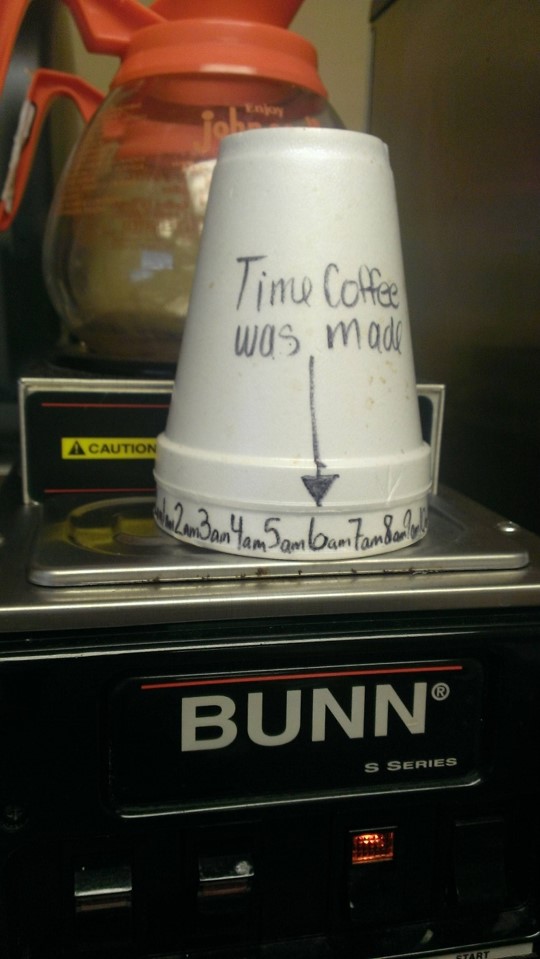 Enjoy
Time Coffee
was made
2am 3am 4am 5am 6am 7am 8am 9am
CAUTION
BUNN®
S SERIES
START